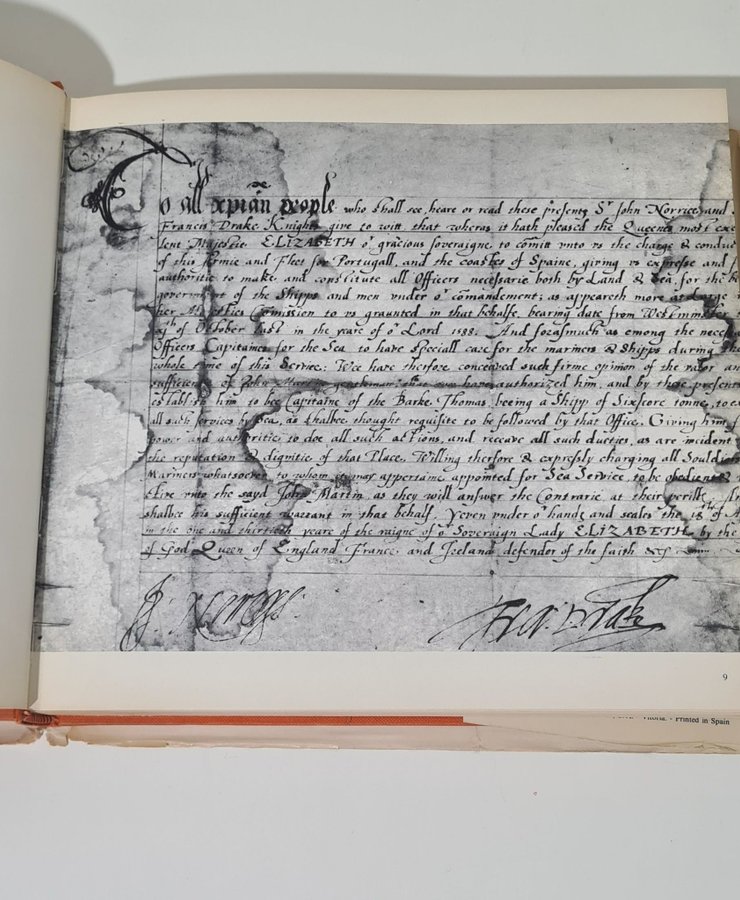 To all xpian people who shall see, heare or read these presents Sr John Norrics and
Francis Drake Knights give to witt that wheras it hath pleased the Queenes most exc
lent Majestie ELIZABETH or gracious soveraigne, to comitt vnto vs the charge & conduc
of this Armie and Fleet for Portugall, and the coastes of Spaine, giving vs expresse and
authoritie to make and constitute all Officers necessarie both by Land & Sea, for the b
government of the Shipps and men vnder or comandement; as appeareth more at large
her Majesties Comission to vs graunted in that behalfe, bearing date from Westminster
of October last in the yeare of or Lord 1588. And forasmuch as among the necess
Officers Capitaines for the Sea to have speciall care for the mariners & Shipps during th
whole tyme of this Service: Wee have therfore conceived such firme opinion of the valor an
sufficienc of John gentleman, have authorized him, and by these present
establish him to be Capitaine of the Barke Thomas beeing a Shipp of Sixscore tonne, to
all such services by Sea, as shalbee thought requisite to be followed by that Office. Giving him f
power and authoritie to doe all such actions, and receave all such duties, as are incident
the reputation & dignitie of that Place. Willing therfore & expressly charging all Souldio
Mariners whatsoever to whom it may appertaine appointed for Sea Service, to be obedient &
tive vnto the sayd John Martin, as they will answer the Contrarie at their perills. An
shalbee his sufficient warrant in that behalf. Yeven vnder or hands and seales the of A
in the one and thirtieth yeare of the raigne of or Sovereign Lady ELIZABETH by the
of God Queen of England France and Ireland defendor of the faith &c
J. Norreys
Fra: Drake
9
Vitoria. - Printed in Spain